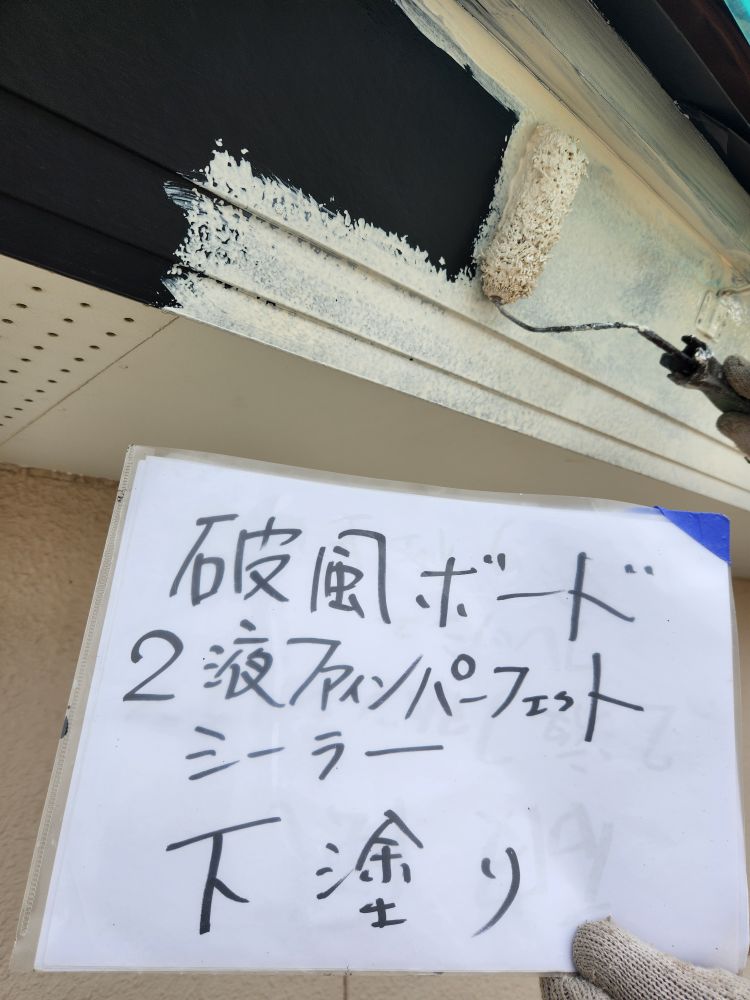 破風ボード
2液ファインパーフェクト
シーラー
下塗り